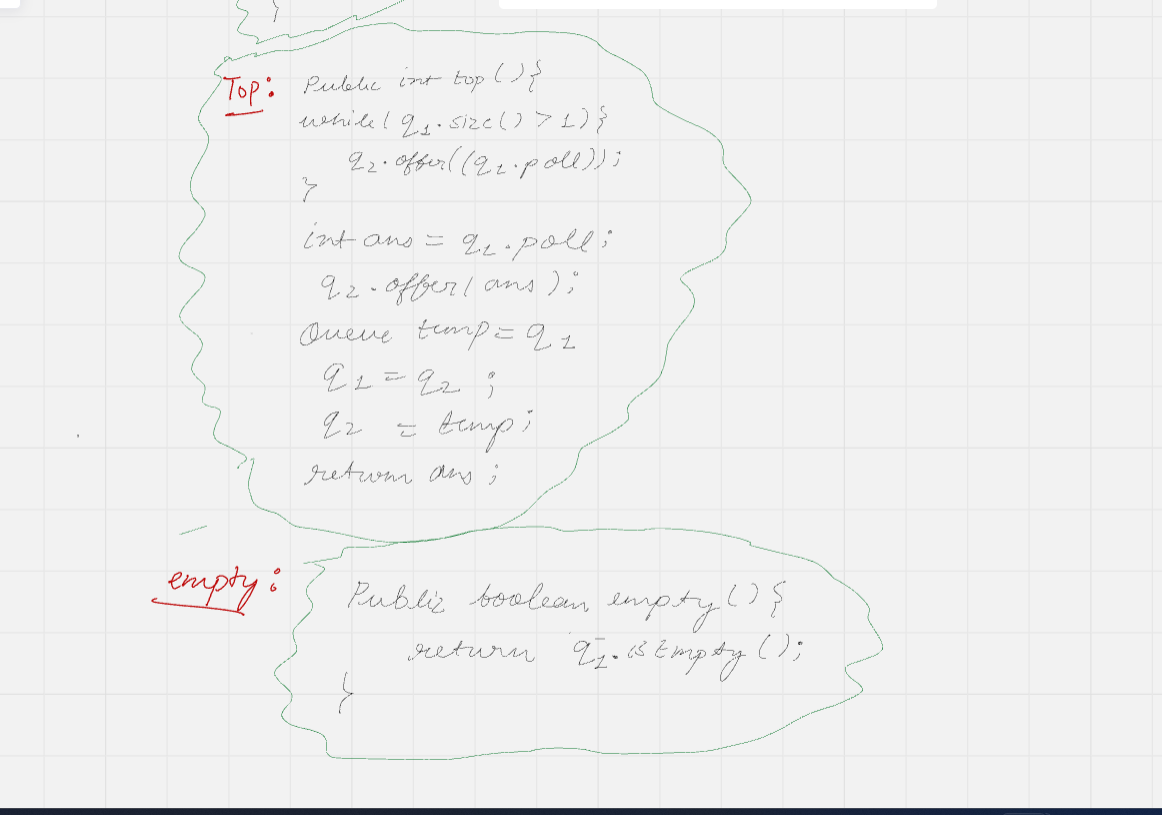 }
Top: Public int top () {
while( q1.size() > 1) {
q2.offer((q1.poll));
}
int ans = q1.poll;
q2.offer( ans );
Queue temp = q1
q1 = q2 ;
q2 = temp;
return ans ;
empty: Public boolean empty () {
return q1.isEmpty ();
}